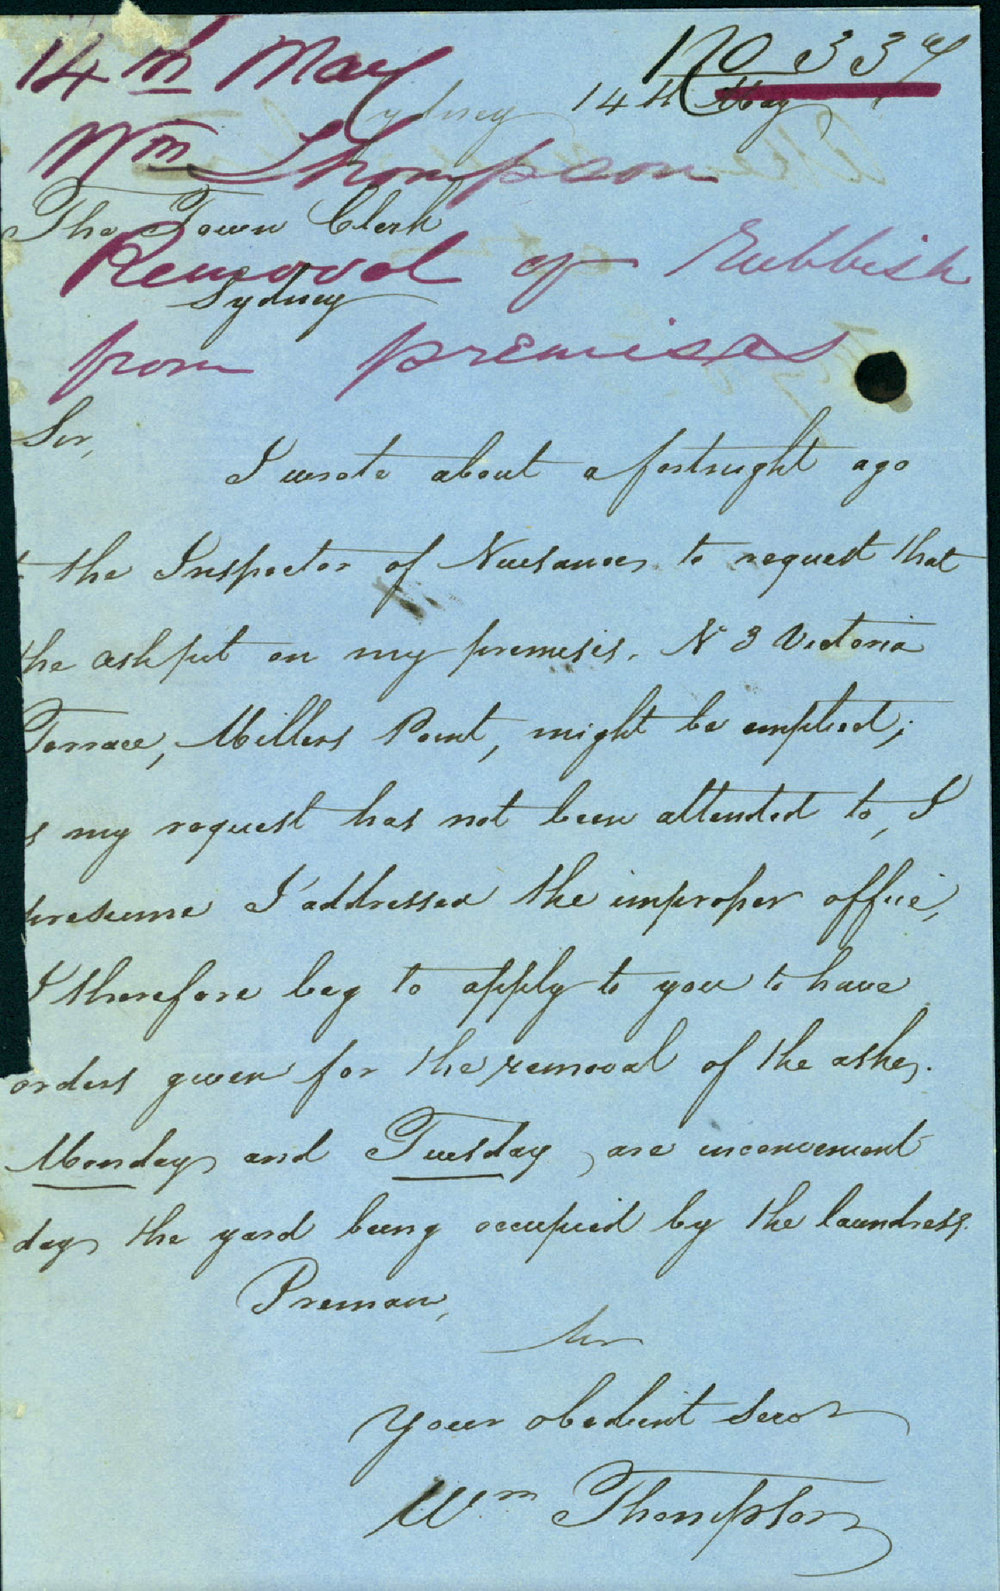 14th May
No 337
Sydney 14th May
Wm Thompson
The Town Clerk
Removal of Rubbish
Sydney
from premises
Sir,
I wrote about a fortnight ago
the Inspector of Nuisances to request that
the ashpit on my premisis. No 3 Victoria
Terrace, Millers Point, might be emptied;
s my request has not been attended to, I
presume I addressed the improper office,
I therefore beg to apply to you to have
orders given for the removal of the ashes.
Monday and Tuesday, are inconvenient
days the yard being occupied by the laundress.
I remain,
Sir
Your obedient servt
Wm Thompson